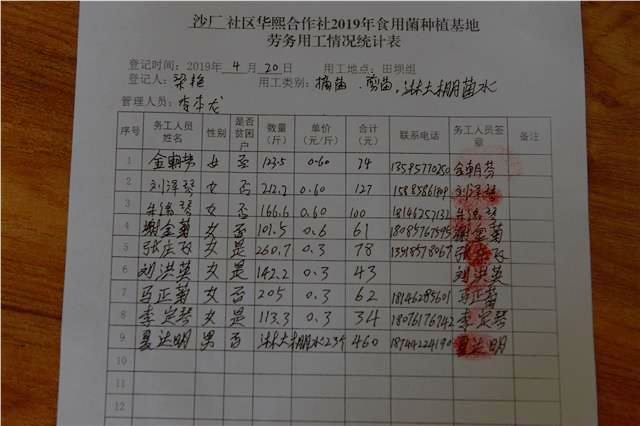 沙厂 社区华熙合作社2019年食用菌种植基地
劳务用工情况统计表
登记时间：2019年 4 月 20 日 用工地点：田坝组
登记人：梁艳 用工类别：摘菌、剪菌，淋大棚菌水
管理人员：李本龙
序号 务工人员姓名 性别 是否贫困户 数量（斤） 单价（元/斤） 合计（元） 联系电话 务工人员签章 备注
1 金朝芬 女 否 123.5 0.60 74 13595770250 金朝芬
2 刘泽琴 女 否 212.2 0.60 127 刘泽琴
3 女 否 166.6 0.60 100 18146257132
4 谢金菊 女 否 101.5 0.6 61 18085767595 谢金菊
5 女 是 260.7 0.3 78
6 刘洪英 女 是 142.2 0.3 43 刘洪英
7 马正菊 女 否 205 0.3 62 18146285601 马正菊
8 李定琴 女 是 113.3 0.3 34 18076176742 李定琴
9 夏达明 男 否 淋大棚水23个 460 18744224190 夏达明
10
11
12